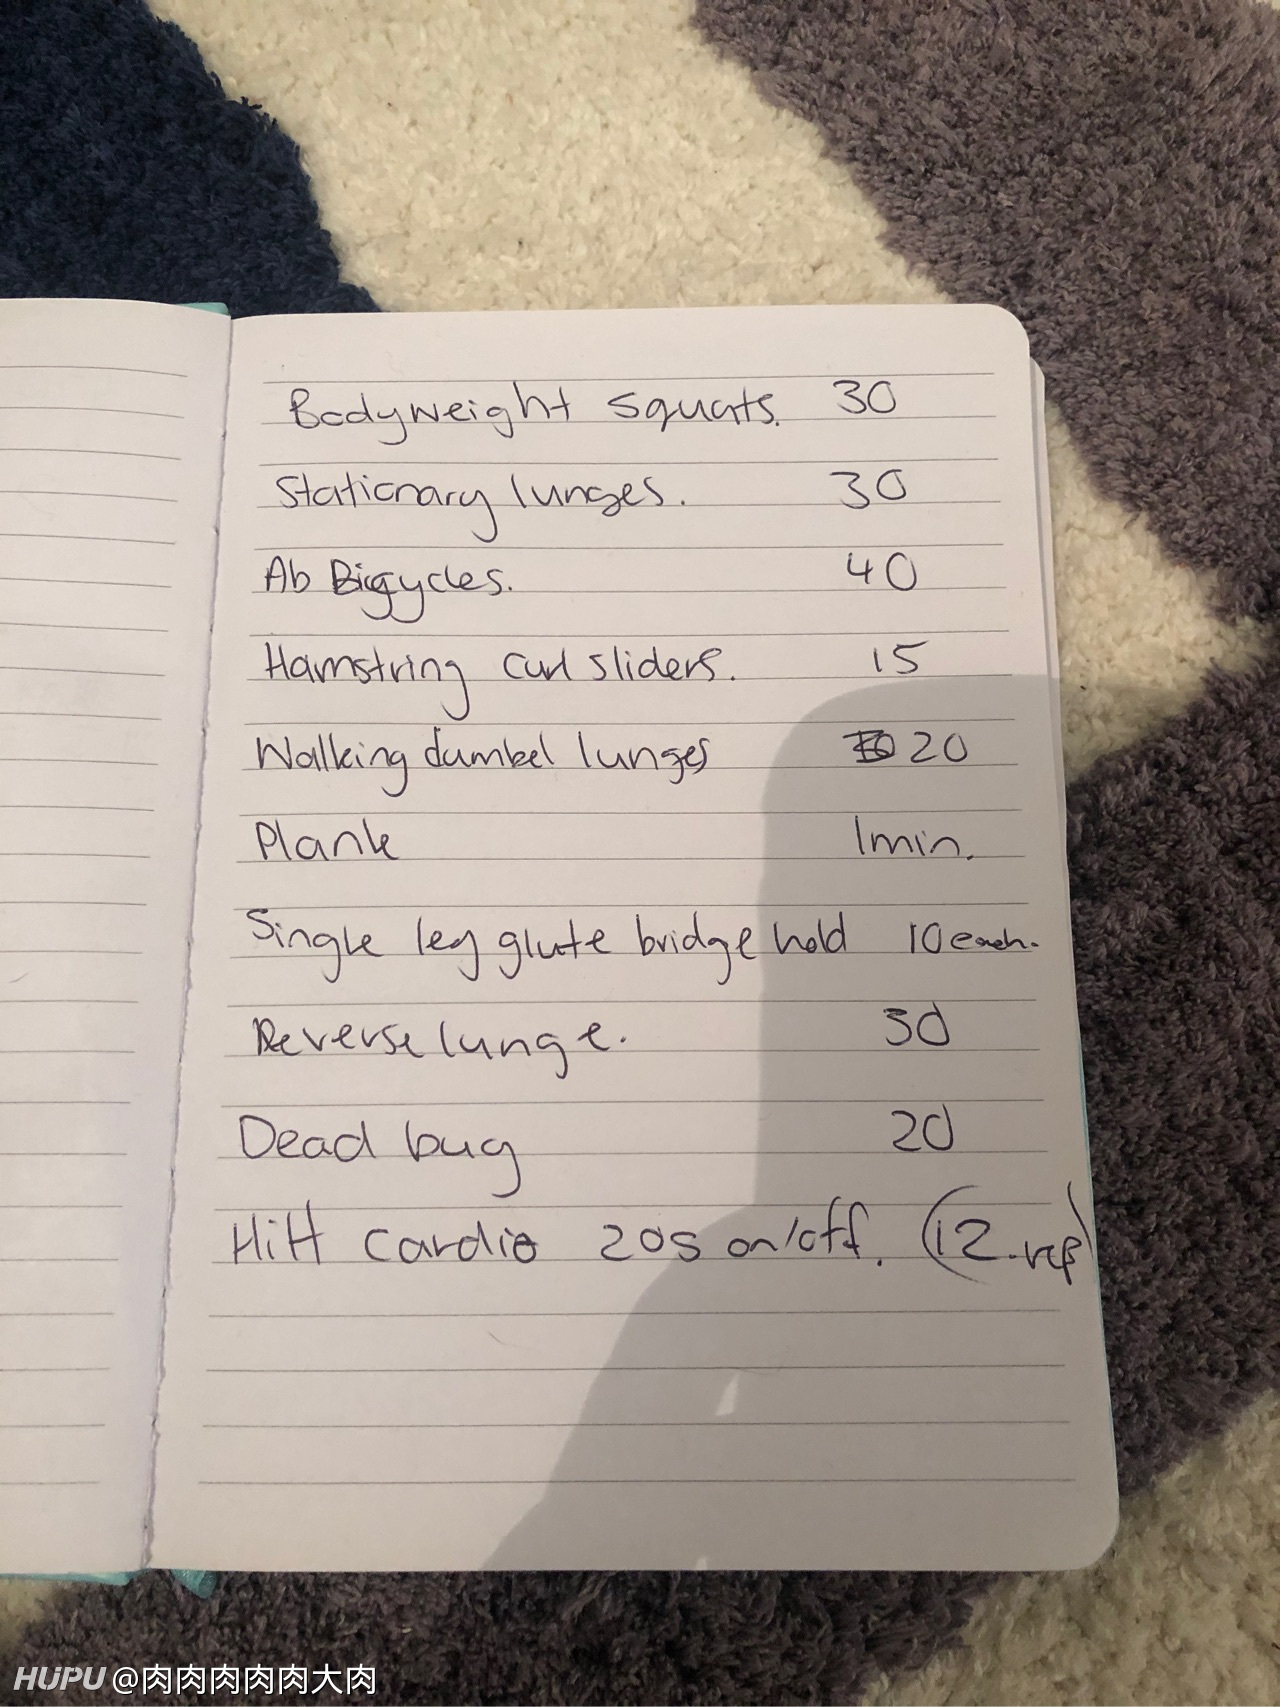 Bodyweight squats. 30
Stationary lunges. 30
Ab Bicycles. 40
Hamstring curl sliders. 15
Walking dumbel lunges 20
Plank 1min.
Single leg glute bridge hold 10 each.
Reverse lunge. 30
Dead bug 20
HiH cardio 20s on/off. (12.rep)
HUPU @肉肉肉肉肉大肉